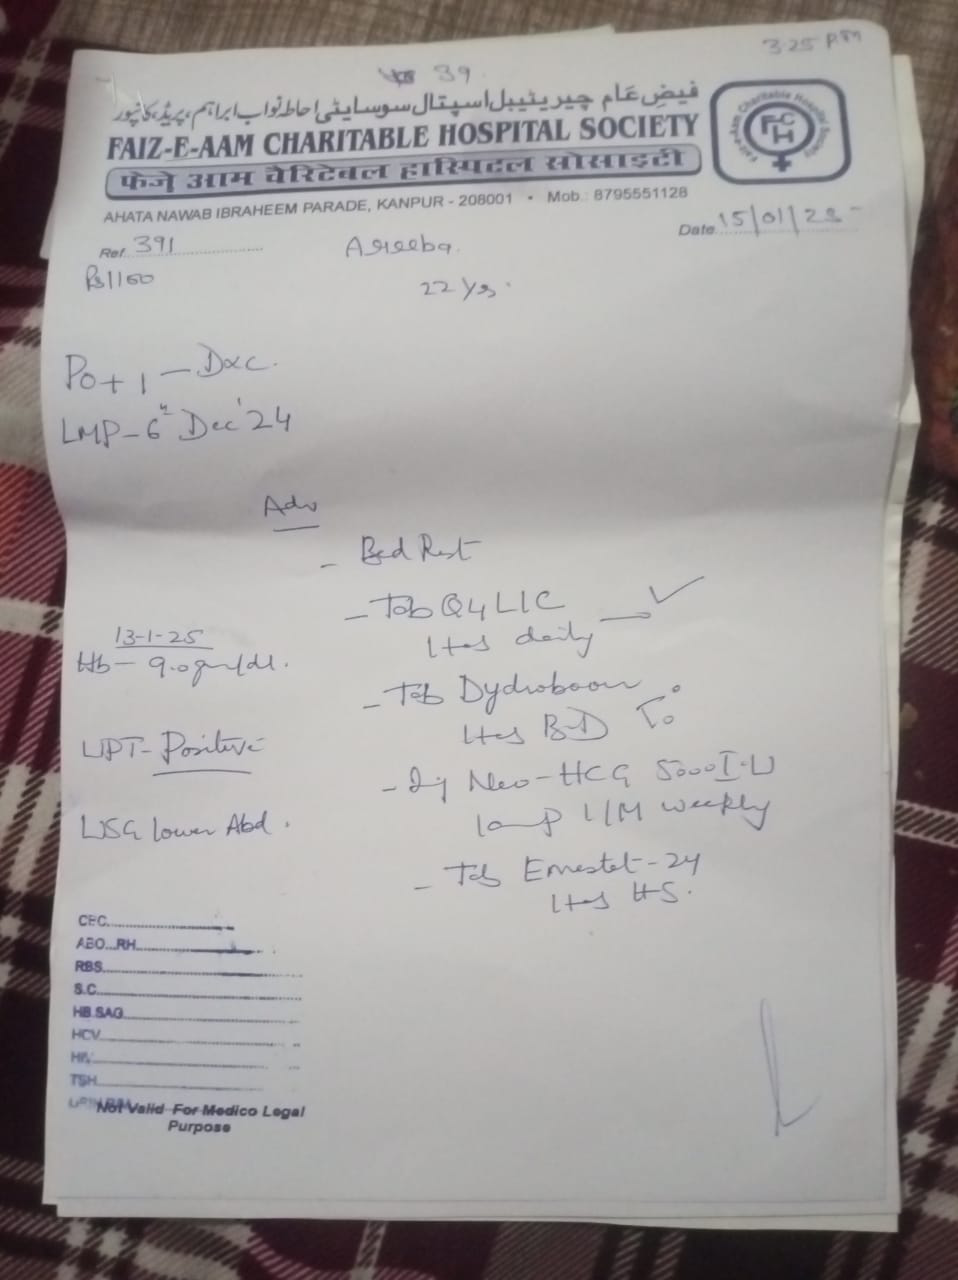 3.25 PM
39
فیضِ عَام چیریٹیبل اسپتال سوسایٹی احاطہ نواب ابراہیم، پریڈ، کانپور
FAIZ-E-AAM CHARITABLE HOSPITAL SOCIETY
फेजे आम चैरिटेबल हास्पिटल सोसाइटी
Faiz-e-Aam Charitable Hospital Society
FCH
AHATA NAWAB IBRAHEEM PARADE, KANPUR - 208001 • Mob.: 8795551128
Ref. 391
Date. 15/01/25
Areeba.
Rs1100
22 Yrs.
P0+1 — D&C.
LMP - 6th Dec'24
Adv
- Bed Rest
- Tab Q4LIC
1 tab daily
13-1-25
Hb - 9.0 gm/dl.
- Tab Dydroboon
1 tab BD To
UPT - Positive
- Inj Neo-HCG 5000 I.U
1 amp I/M weekly
USG lower Abd.
- Tab Emestet-24
1 tab HS.
CBC
ABO...RH
RBS
S.C
HB.SAG
HCV
HIV
TSH
Not Valid For Medico Legal
Purpose